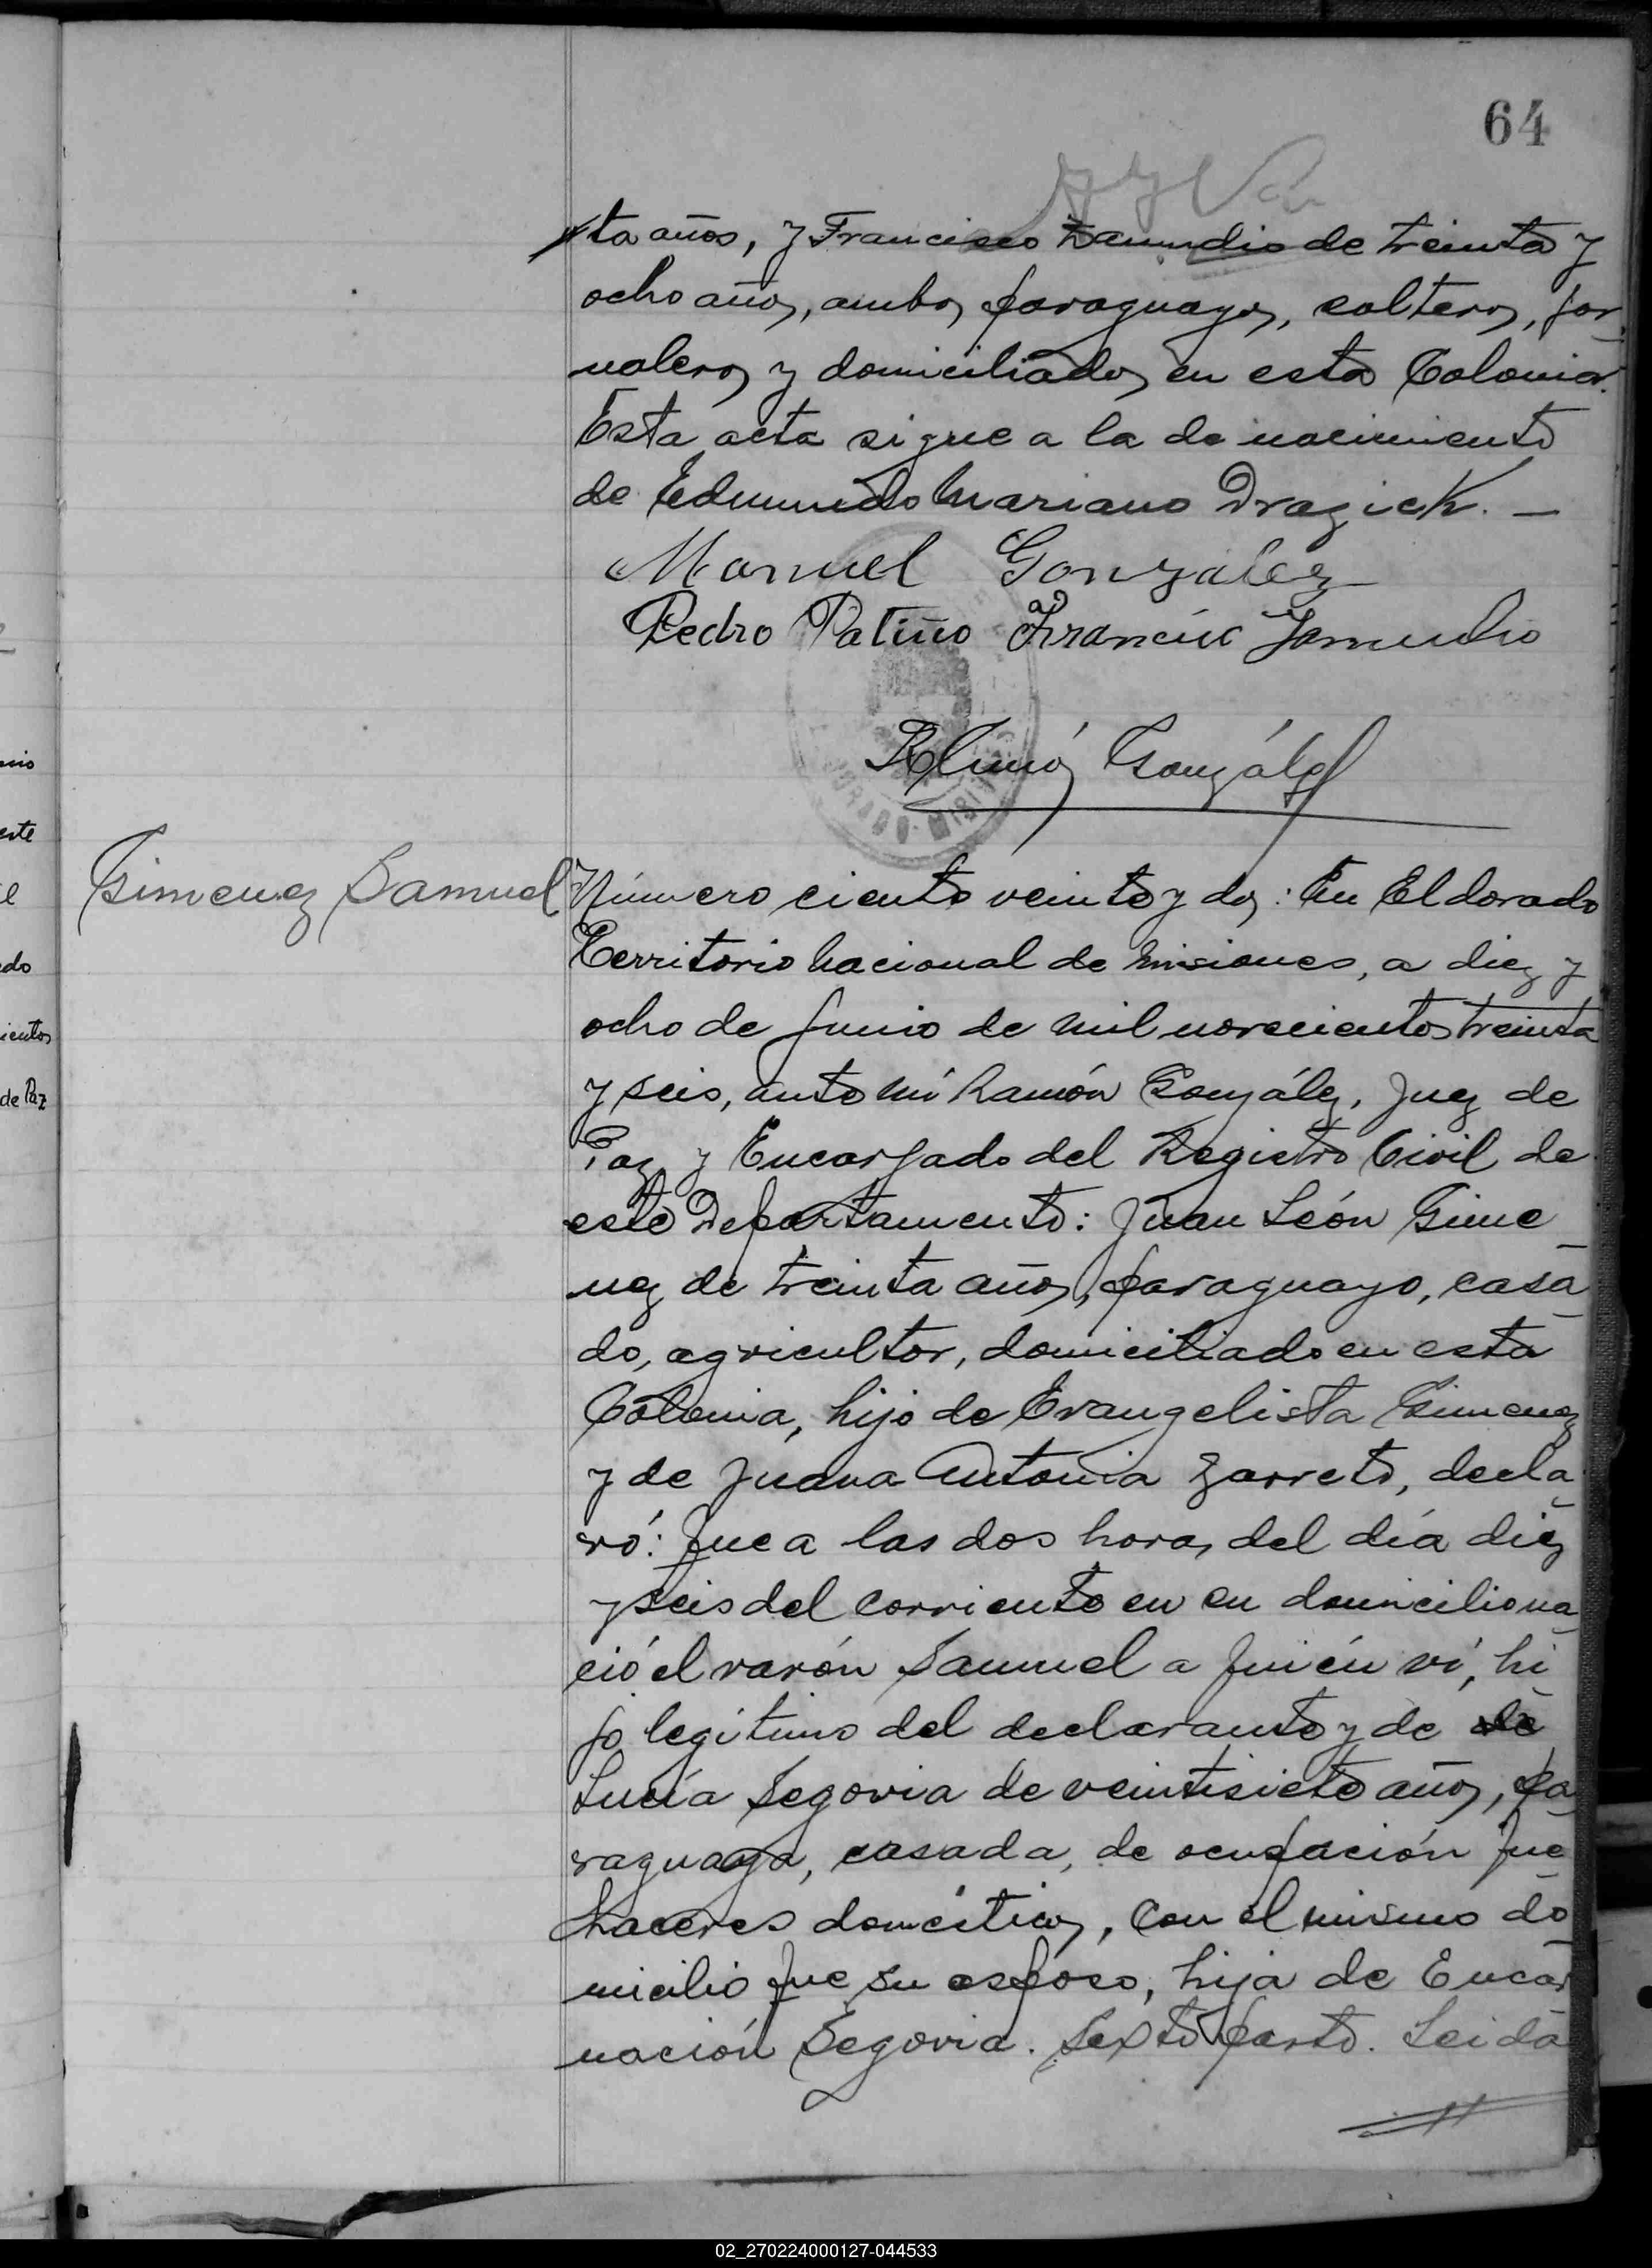 64
ta años, y Francisco de treinta y
ocho años, ambos paraguayos, solteros, jor-
naleros y domiciliados en esta Colonia.
Esta acta sigue a la de nacimiento
de Edmundo Mariano Drazick. —
Manuel González
Pedro Patiño Francisco
Ramón González
Gimenez Samuel
Número ciento veinte y dos: En Eldorado
Territorio Nacional de Misiones, a diez y
ocho de Junio de mil novecientos treinta
y seis, ante mí Ramón González, Juez de
Paz y Encargado del Registro Civil de
este Departamento: Juan León Gime-
nez de treinta años, paraguayo, casa-
do, agricultor, domiciliado en esta
Colonia, hijo de Evangelista Gimenez
y de Juana Antonia Barreto, decla-
ró: Que a las dos horas del día diez
y seis del corriente en su domicilio na-
ció el varón Samuel a quién ví, hi-
jo legítimo del declarante y de
Lucía Segovia de veintisiete años, pa-
raguaya, casada, de ocupación que-
haceres domésticos, con el mismo do-
micilio que su esposo, hija de Encar-
nación Segovia. Sexto parto. Leida
nio
este
el
do
ientos
de Paz
02_270224000127-044533